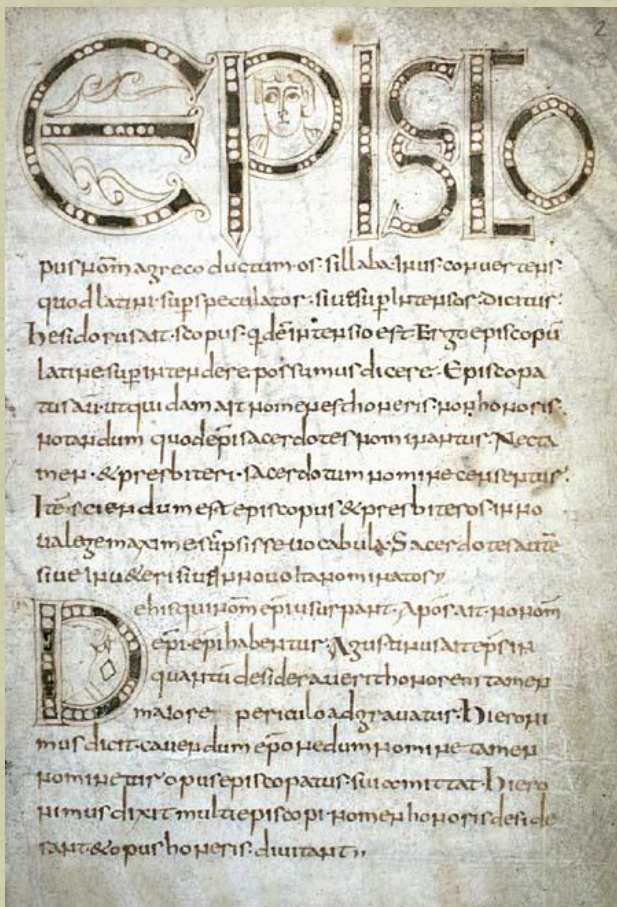 2
EPISCO
pus nom a greco ductum os sillaba in us convertens
quod latini sup speculator sive sup intensor dicitur
hesidorus ait scopus qdē intensio est Ergo episcopū
latine sup intendere possumus dicere Episcopa
tus aū ut quidam ait nomen est honeris non honoris
notandum quod epi sacerdotes nominantur Nec ta
men & presbiteri sacerdotum nomine censentur
Itē sciendum est episcopus & presbiteros in no
va lege maxime sūpsisse vocabula Sacerdotes autē
sive in v&eri sive in novo ita nominatos
De his qui nom epi usurpant Apos ait non om
epi epi habentur Agustinus ait eps in
quantū desideraverit honorem tamen
maiore periculo adgravatur Hieroni
mus dicit cavendum epo ne dum nomine tamen
nominetur opus episcopatus sui omittat Hiero
nimus dixit multi episcopi nomen honoris deside
rant & opus honeris divitant